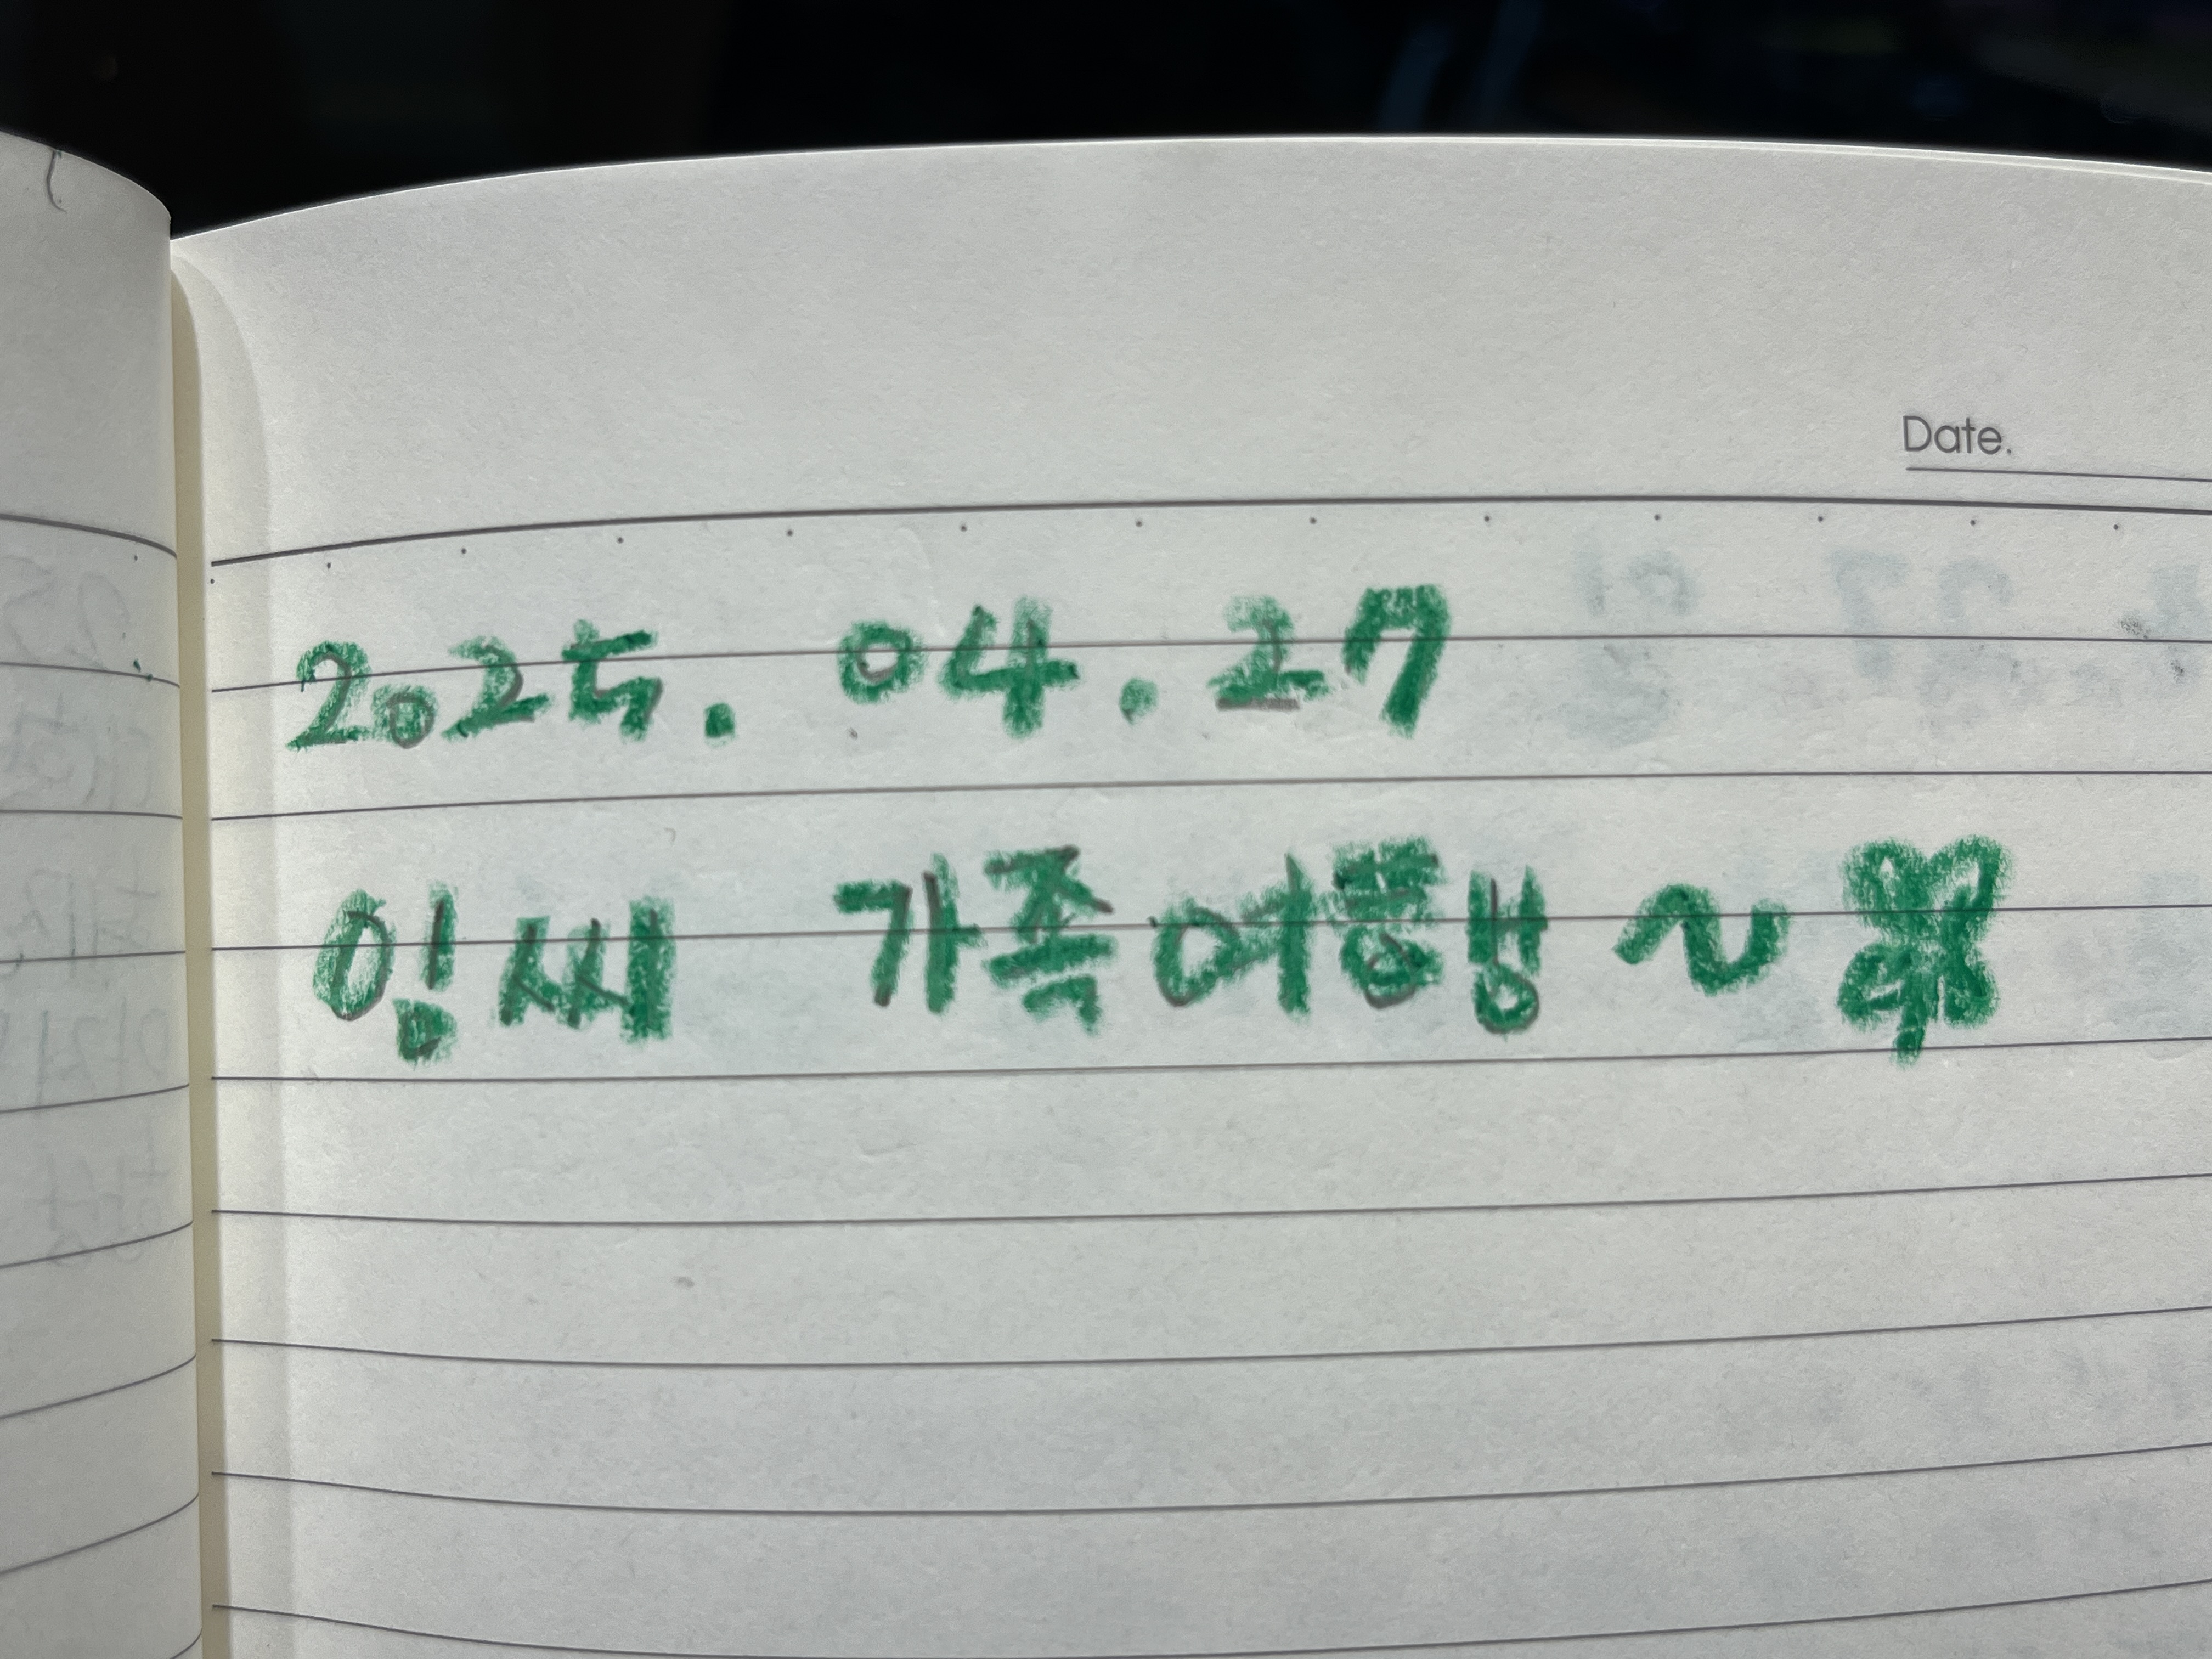 Date.
2025. 04. 27
임씨 가족여행~